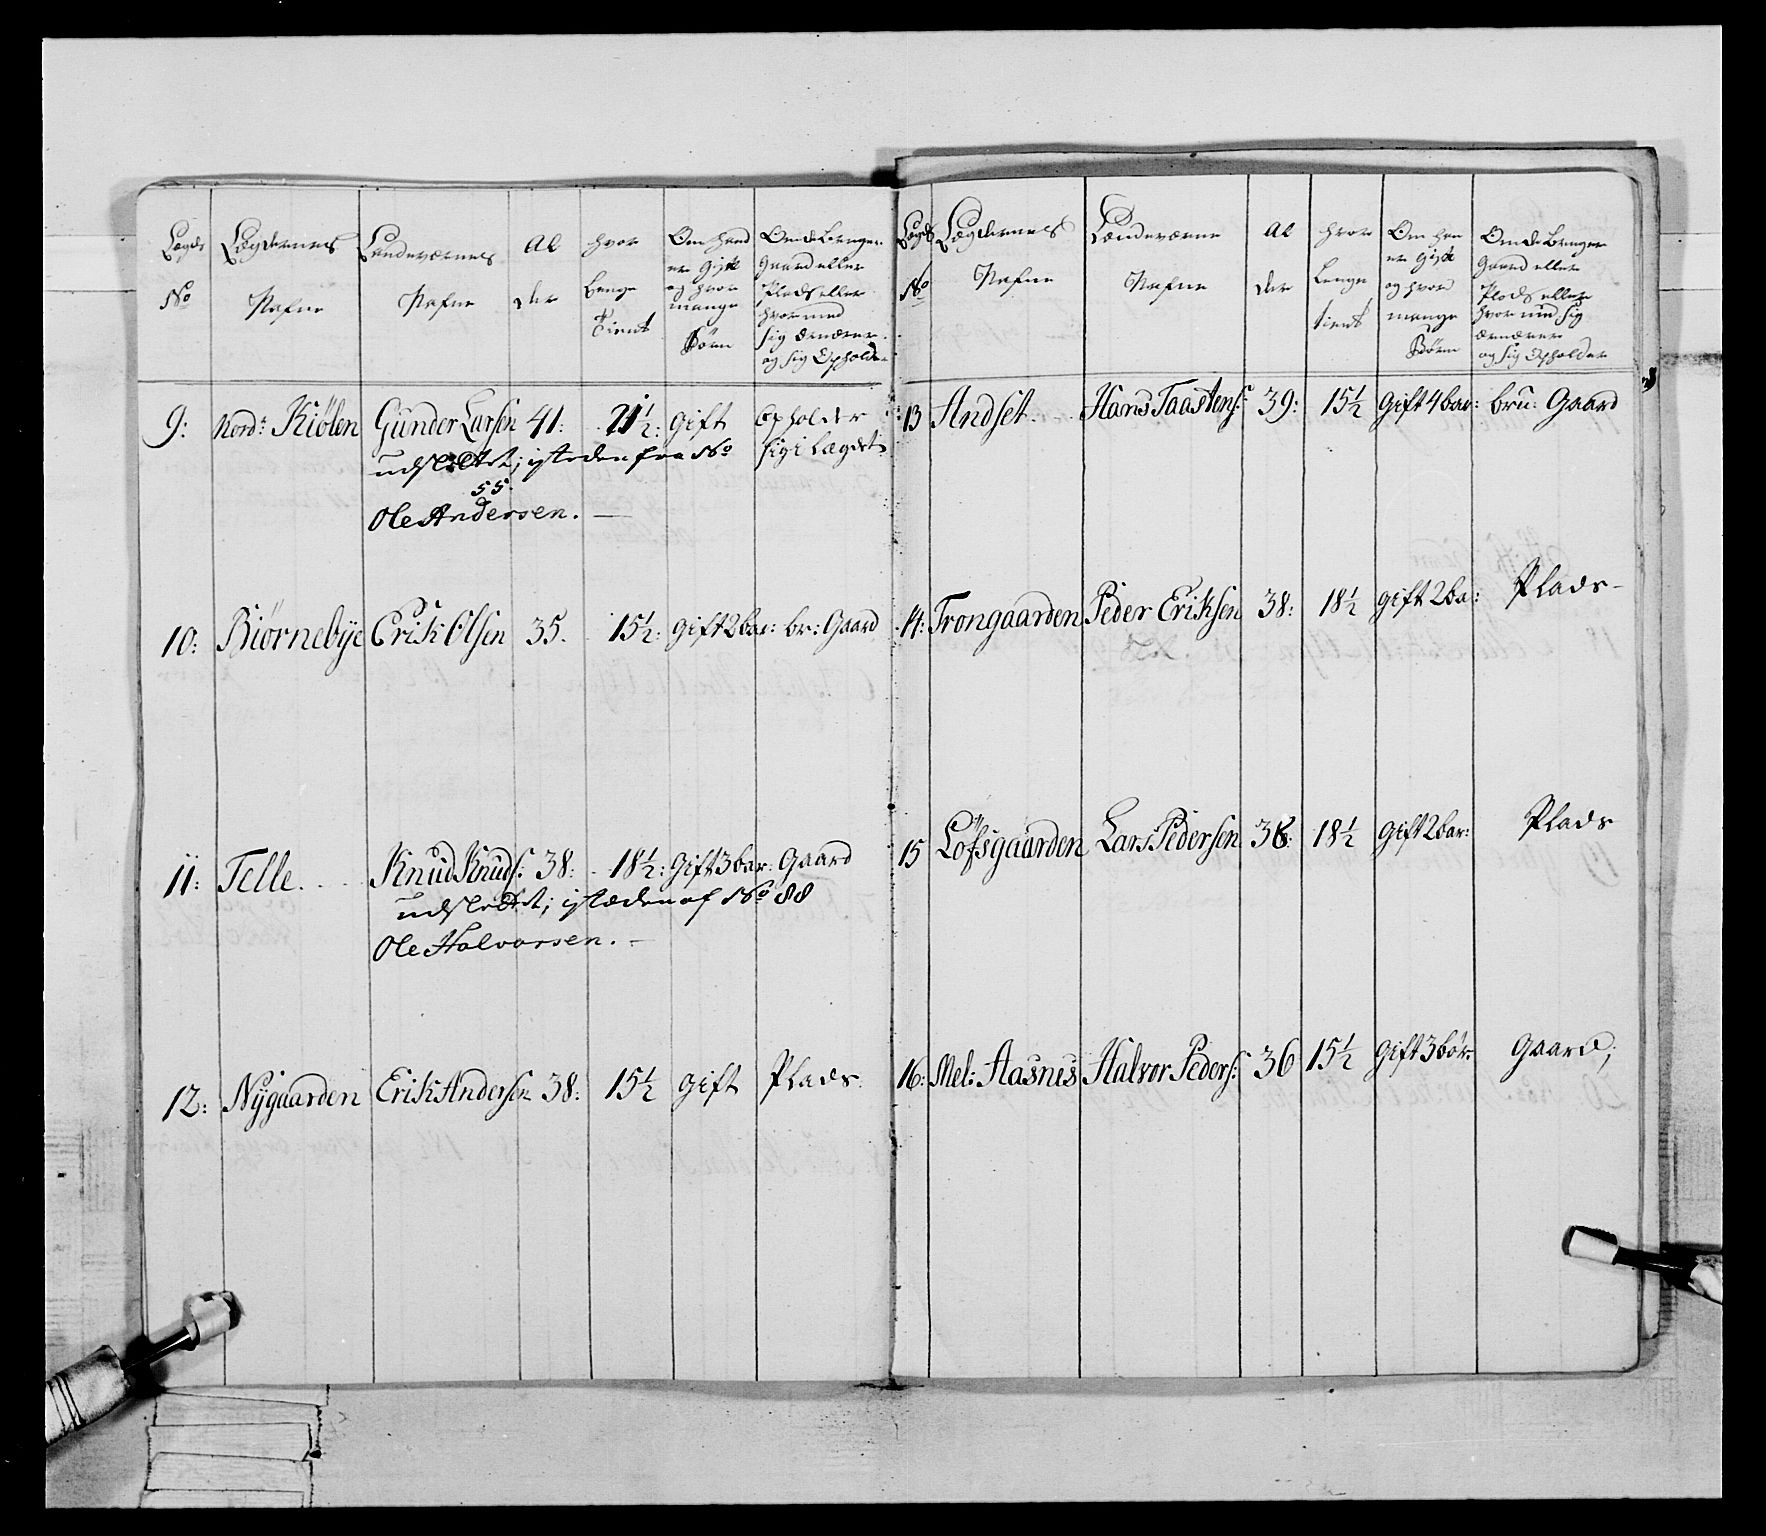 Lægds No
Lægdernes Nafne
Landeværnes Nafne
Al der
hvor Længe Tient
Om hand er gift og hvor mange Børn
Om de bruger Gaard eller Plads eller hvor med sig Ernærer og sig Opholder
9: Nord: Kiølen Gunder Larsen 41: 21½: gift Opholder
udslettet; isteden fra No sig i Lægdet
55
Ole Andersen. —
10: Biørnebye Erik Olsen 35. 15½: gift 2 bar: br: Gaard
11: Telle. Knud Knuds: 38: 18½: gift 3 bar: Gaard
udslettet; istæden af No 88
Ole Halvorsen. —
12: Nÿgaarden Erik Andersen 38: 15½ gift Plads.
Lægds No
Lægdernes Nafne
Landeværne Nafne
Al der
hvor Længe tient
Om han er gift og hvor mange Børn
Om de bruger Gaard eller Plads eller hvor med sig Ernærer og sig Opholder
13 Andset. Hans Taastens: 39: 15½ gift 4 bar: bru: Gaard
14: Trongaarden Peder Eriksen 38: 18½ gift 2 ba: Plads-
15 Løfsgaarden Lars Pedersen 36: 18½ gift 2 bar: Plads
16: Mel: Aasnes Halvor Peders: 36 15½ gift 3 bør Gaard;